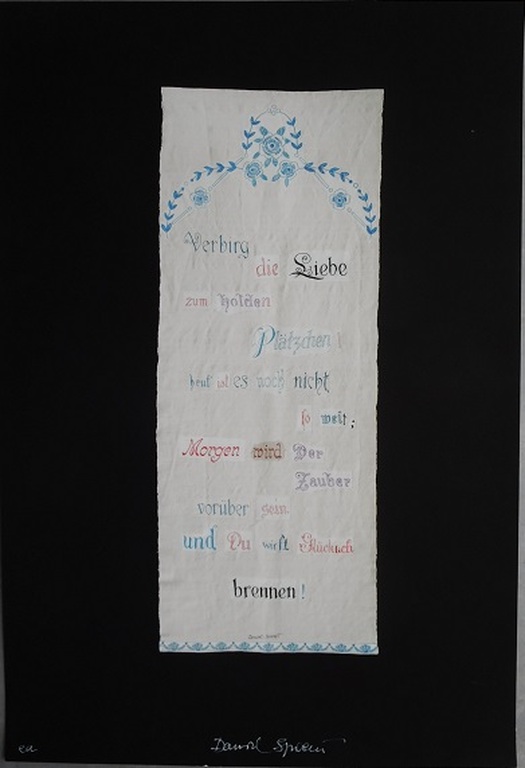 Verbirg
die Liebe
zum holden
Plätzchen !
heut ist es noch nicht
so weit ;
Morgen wird Der
Zauber
vorüber sein
und Du wirst
brennen !
ea Daniel Spoerri